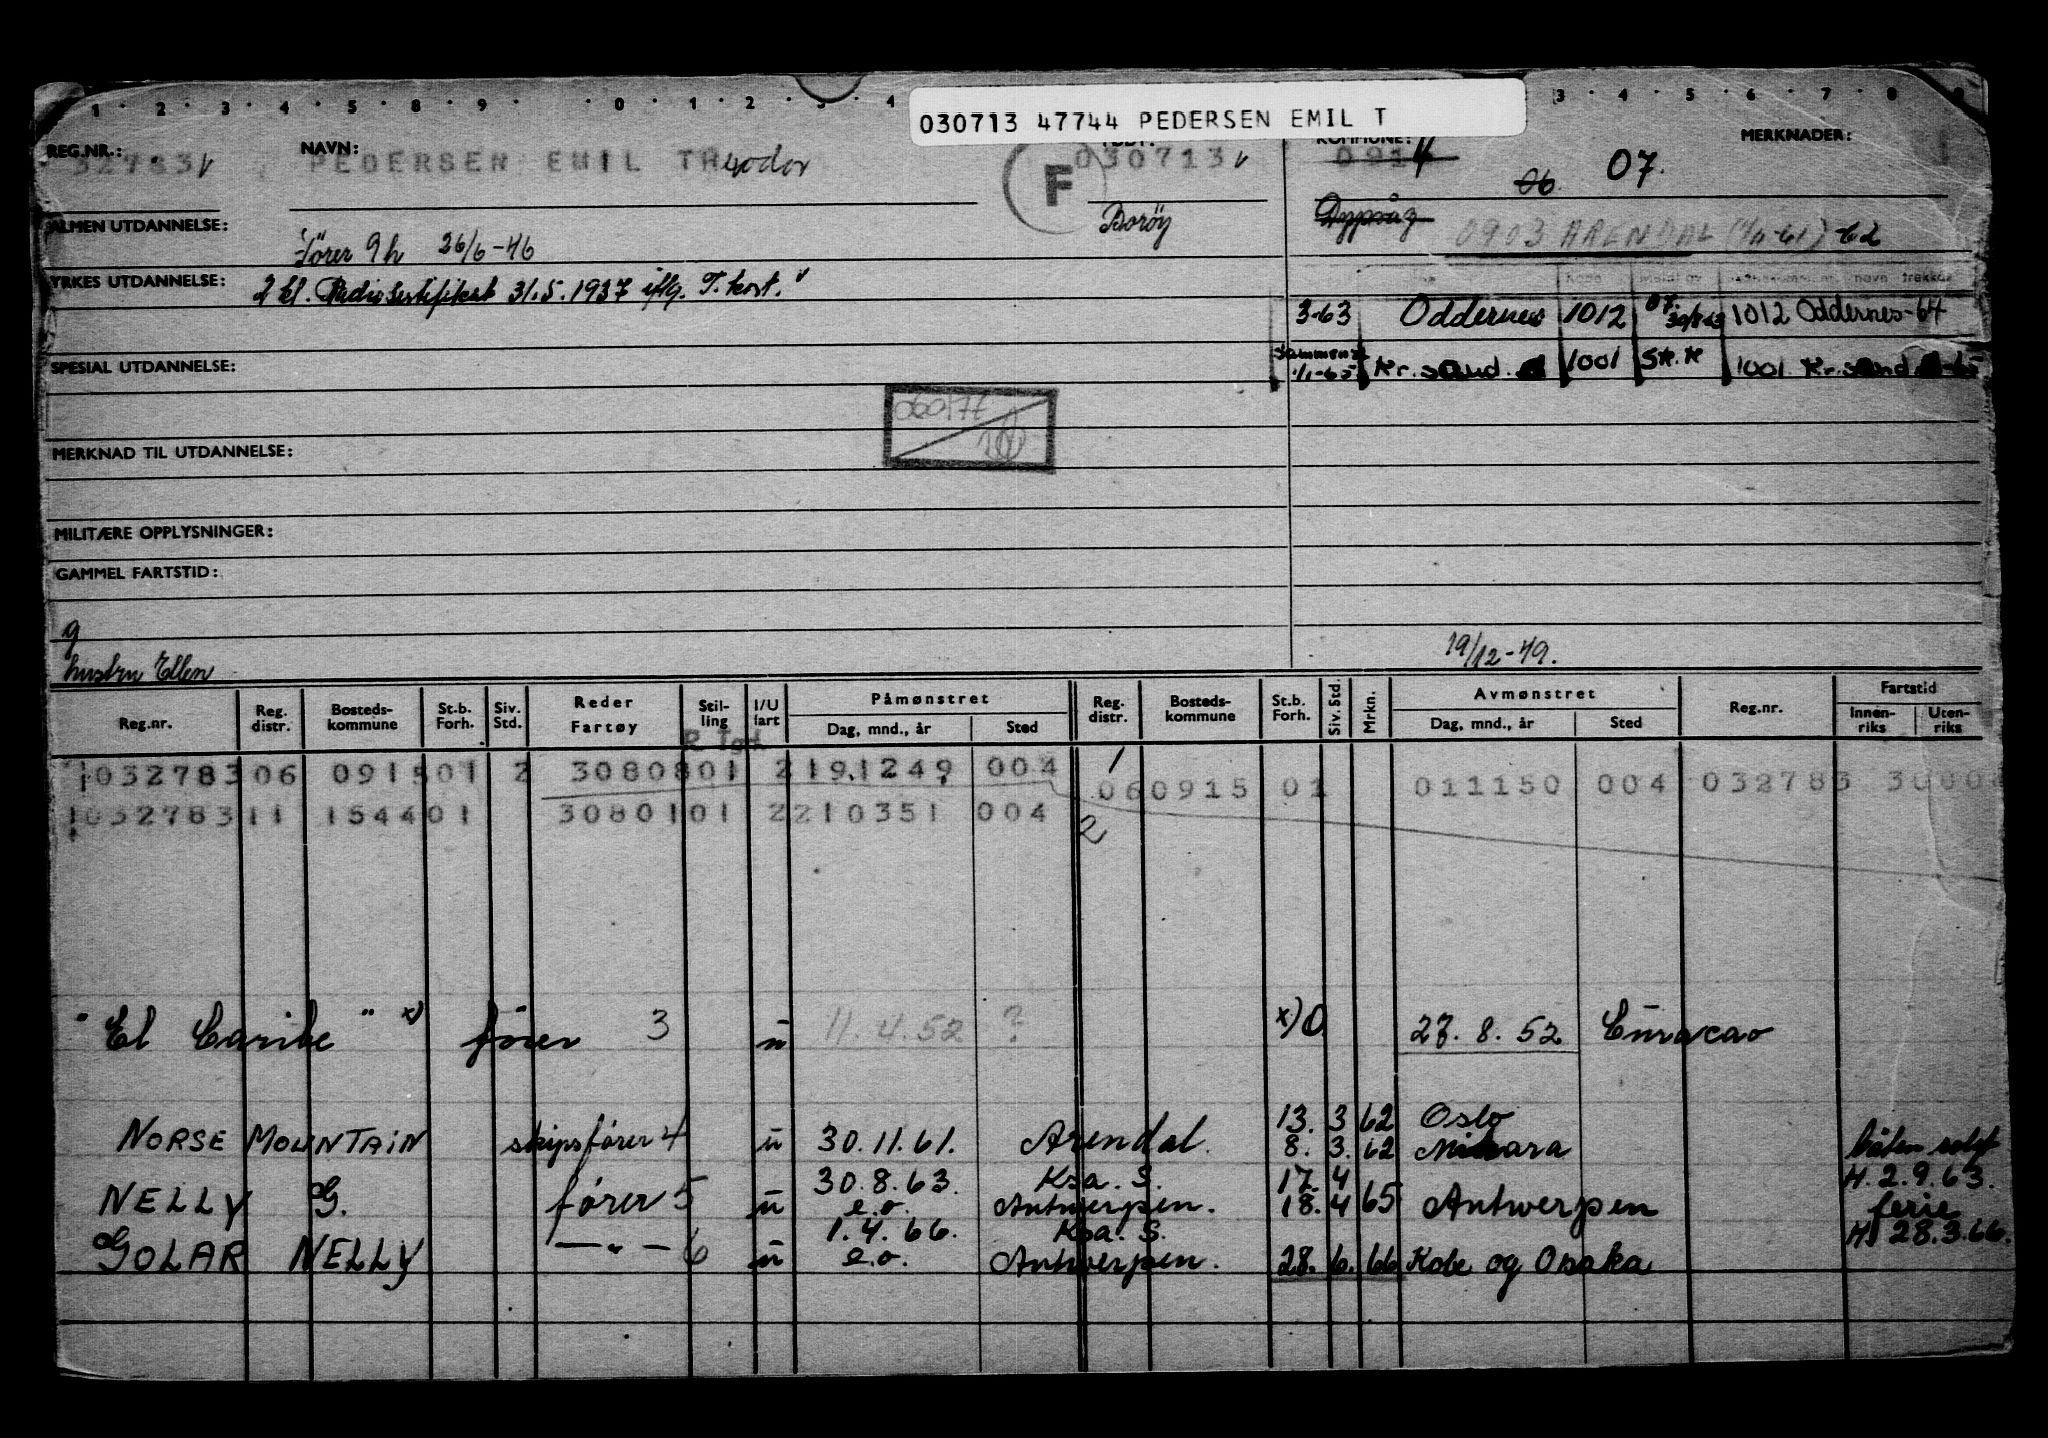 1 · 2 · 3 · 4 · 5 · 8 · 9 · · 0 · 1 · 2 · 3 · 4 3 · 4 · 5 · 6 · 7 · 8 · 9
030713 47744 PEDERSEN EMIL T
REG.NR.: NAVN: FØDT: KOMMUNE: MERKNADER:
32783 v PEDERSEN EMIL THeodor F 030713 v 06 07.
Borøy Dypvåg
ALMEN UTDANNELSE: 0903 ARENDAL (1/11-61) -62
fører 9 h 26/6-46
YRKES UTDANNELSE: 2 kl. Radiosertifikat 31.5.1937 iflg. T. kort. v
3-63 Oddernes 1012 07. 1012 Oddernes-64
SPESIAL UTDANNELSE:
1/1-65 Kr.sand. 1001 Sk.K 1001 Kr.sand
060177
MERKNAD TIL UTDANNELSE:
MILITÆRE OPPLYSNINGER:
GAMMEL FARTSTID:
g
hustru Ellen 19/12-49.
Reg.nr. Reg. distr. Bosteds-kommune St.b. Forh. Siv. Std. Reder Fartøy Stil-ling I/U fart Påmønstret Dag, mnd., år Sted Reg. distr. Bosteds-kommune St.b. Forh. Siv. Std. Mrkn. Avmønstret Dag, mnd., år Sted Reg.nr. Fartstid Innen-riks Uten-riks
1032783 06 0915 01 2 3080801 2 191249 004 1 060915 01 011150 004 032783
1032783 11 1544 01 3080101 2 210351 004 2
"El Caribe" x) fører 3 u 11.4.52 ? x) 0 27.8.52 Curacao
13. 3 62 Oslo
NORSE MOUNTAIN skipsfører 4 u 30.11.61. Arendal. 8. 3. 62 båten solgt
30.8.63. Ksa. S. 17. 4 H. 2.9.63.
NELLY G. fører 5 u e.o. Antwerpen. 18. 4 65 Antwerpen ferie
1.4.66. Ksa. S. H. 28.3.66.
GOLAR NELLY — " — 6 u e.o. Antwerpen. 28. 6. 66 Kobe og Osaka